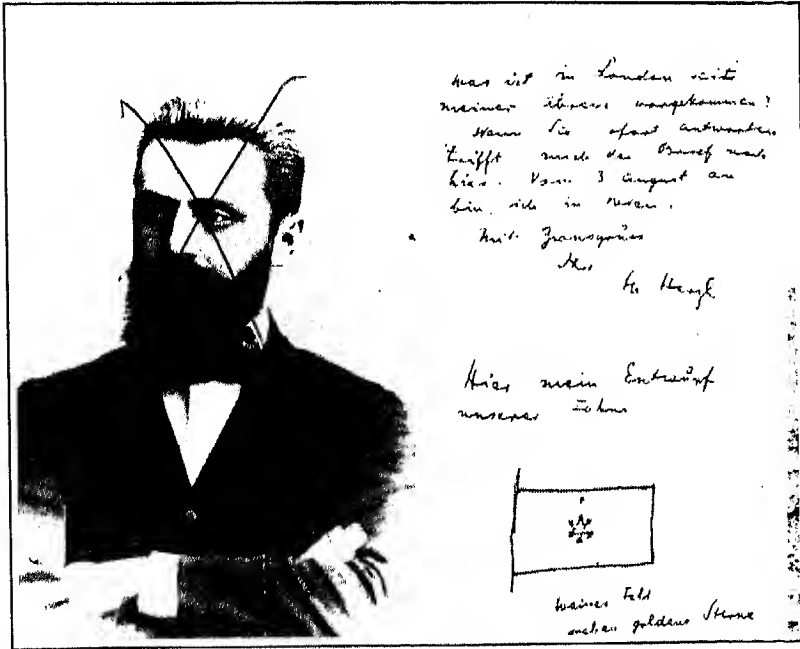 Was ist in London seits
meiner übrens vorgekommen?
Wenn Sie sofort antworten
trifft mich der Brief noch
hier. Vom 3 August an
bin ich in
Mit Zionsgruss
Ihr
Th Herzl
Hier mein Entwurf
unserer Fahne
weisses Feld
sieben goldene Sterne